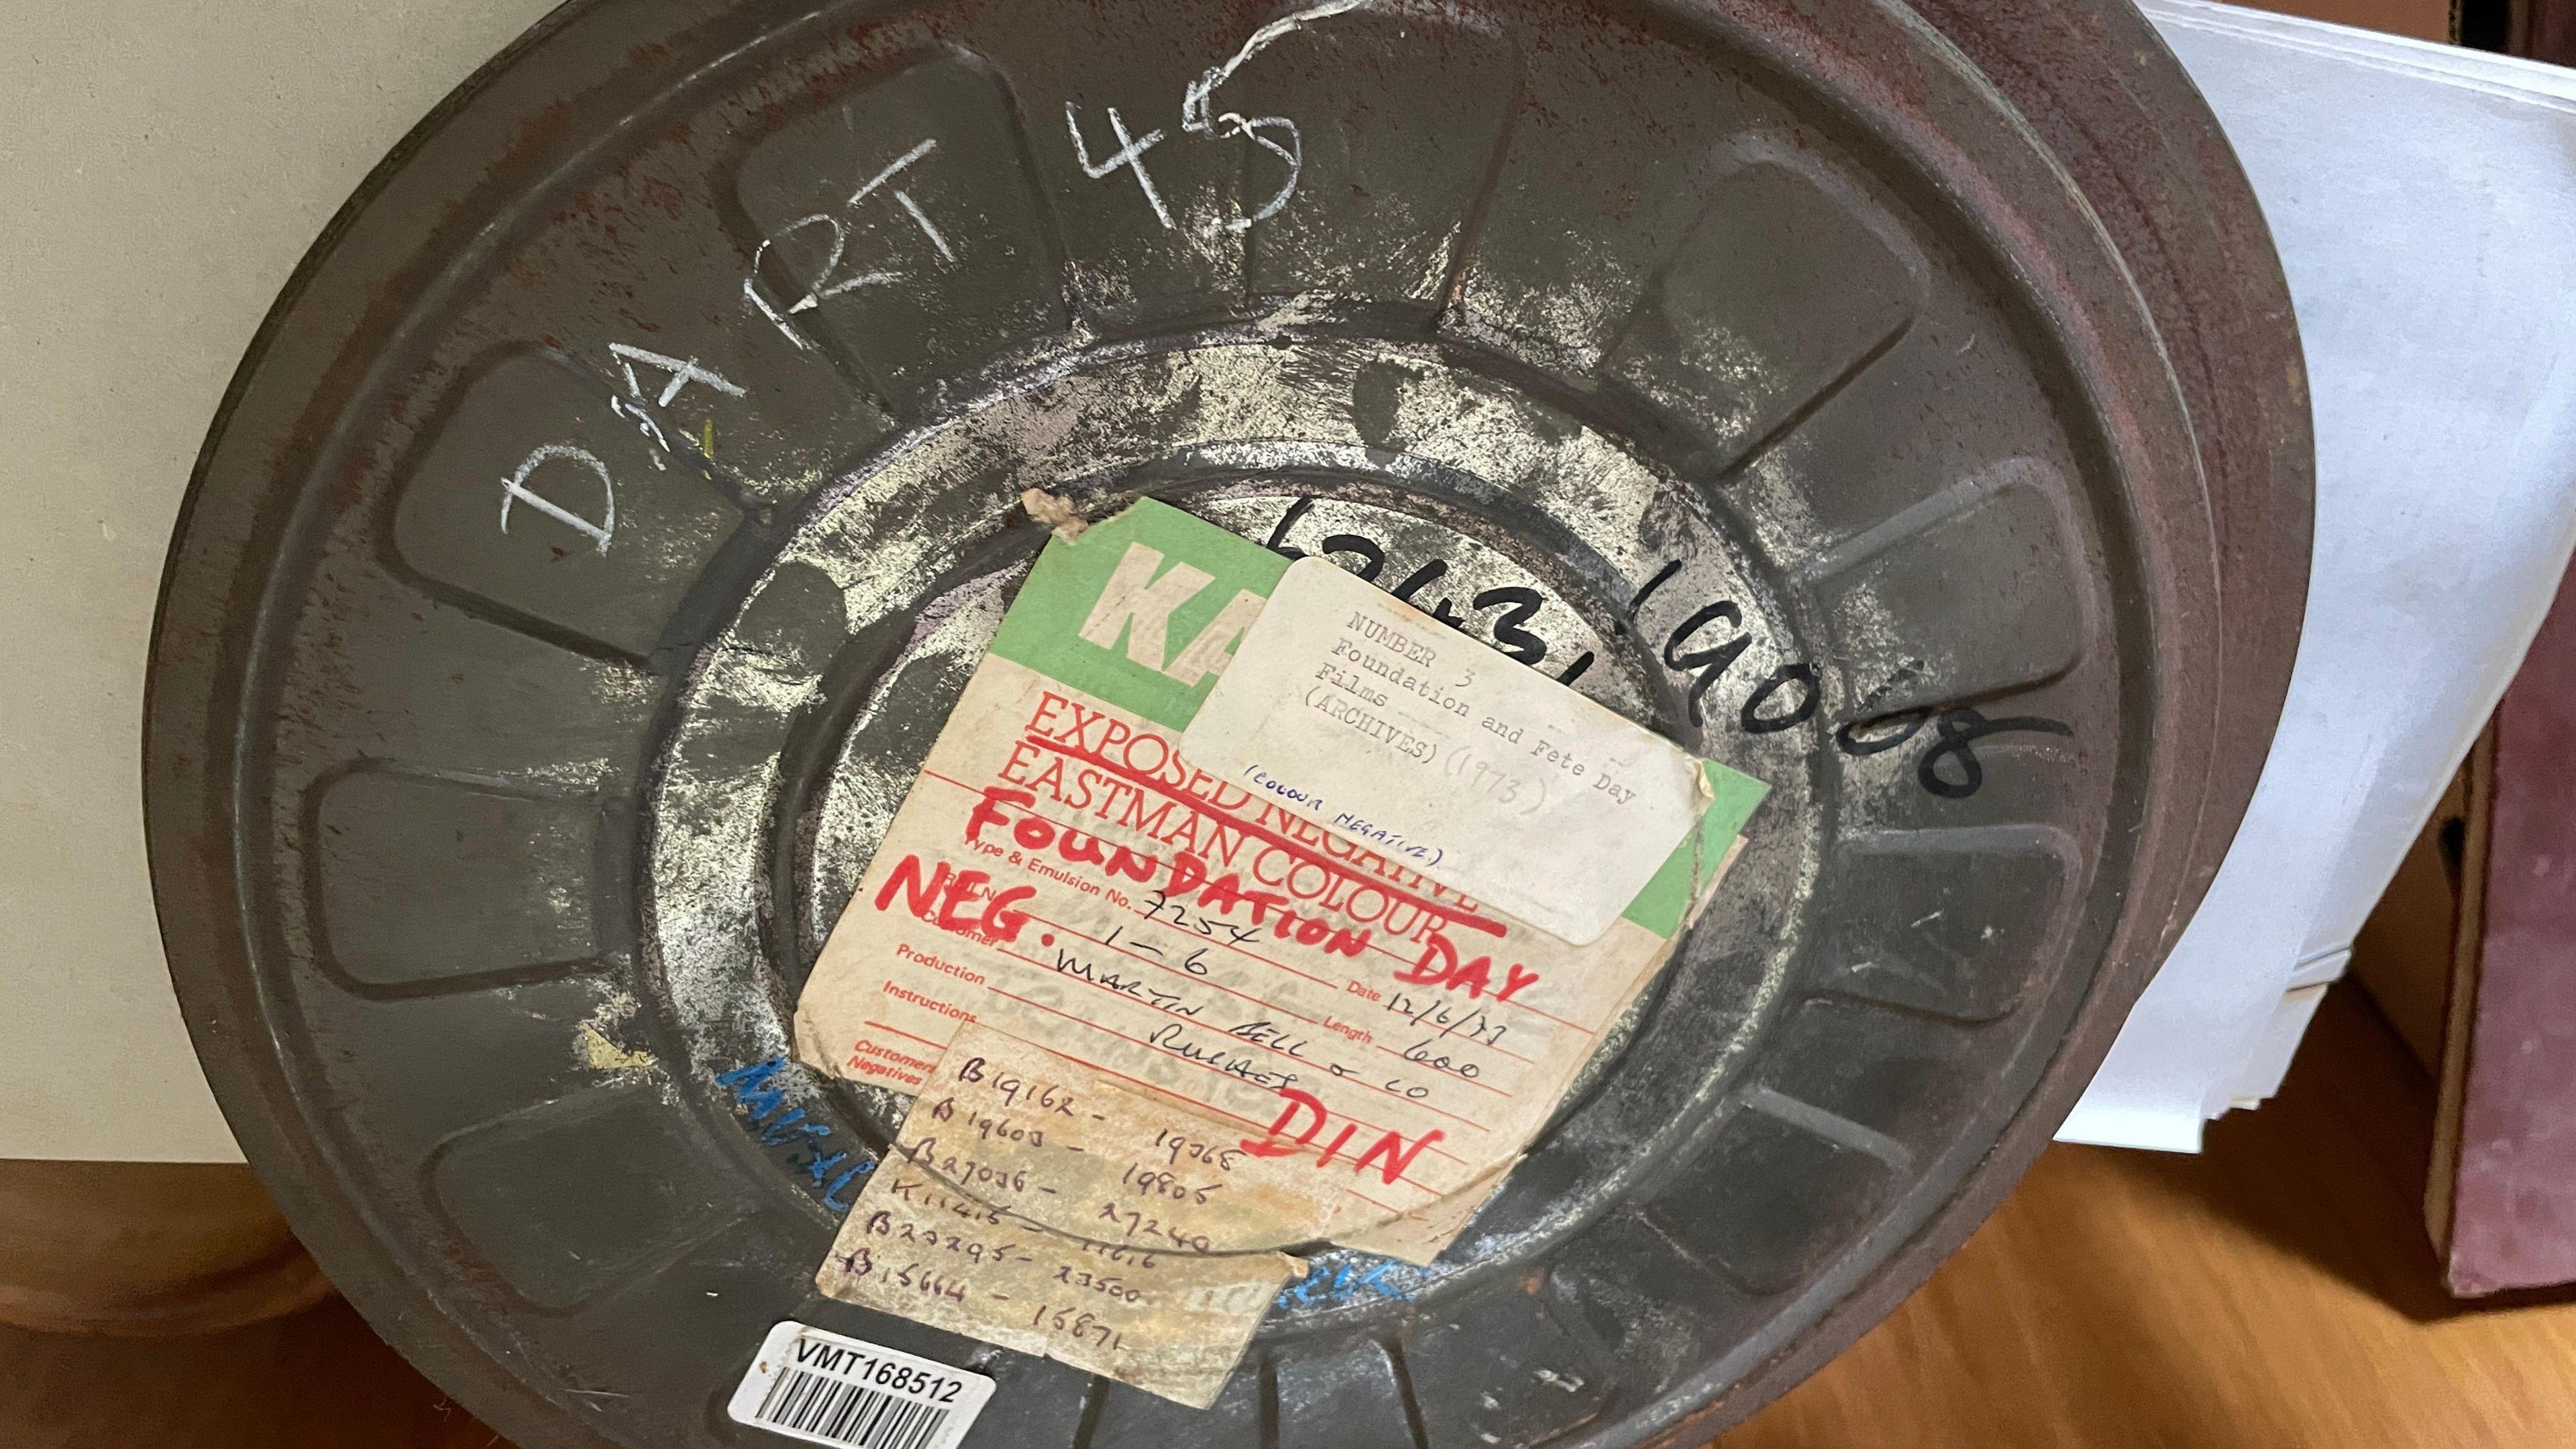 DART 45
KA
NUMBER 3
Foundation and Fete Day
Films
(ARCHIVES) (1973)
(COLOUR NEGATIVE)
EXPOSED NEGATIVE
EASTMAN COLOUR
FOUNDATION DAY
NEG.
Type & Emulsion No. 7254
Date 12/6/73
1-6
Length 600
Customer MARTIN BELL & CO
Production
Instructions
Customer
Negatives
DIN
B19162 - 19368
B19603 - 19805
B27036 - 27240
K11415 - 11616
B23295 - 23500
B15664 - 15871
VMT168512